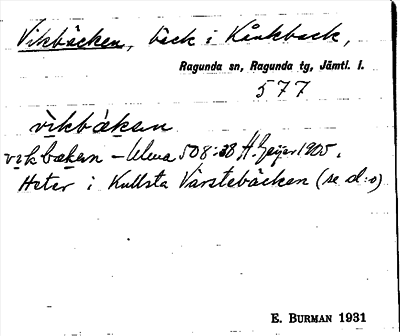 Vikbäcken, bäck i Kånkback,
Ragunda sn, Ragunda tg, Jämtl. l.
577
vìkbä̀kan
vikbækan – Ulma 508:38 H. Geijer 1905.
Heter i Kullsta Värstebäcken (se d:o)
E. BURMAN 1931